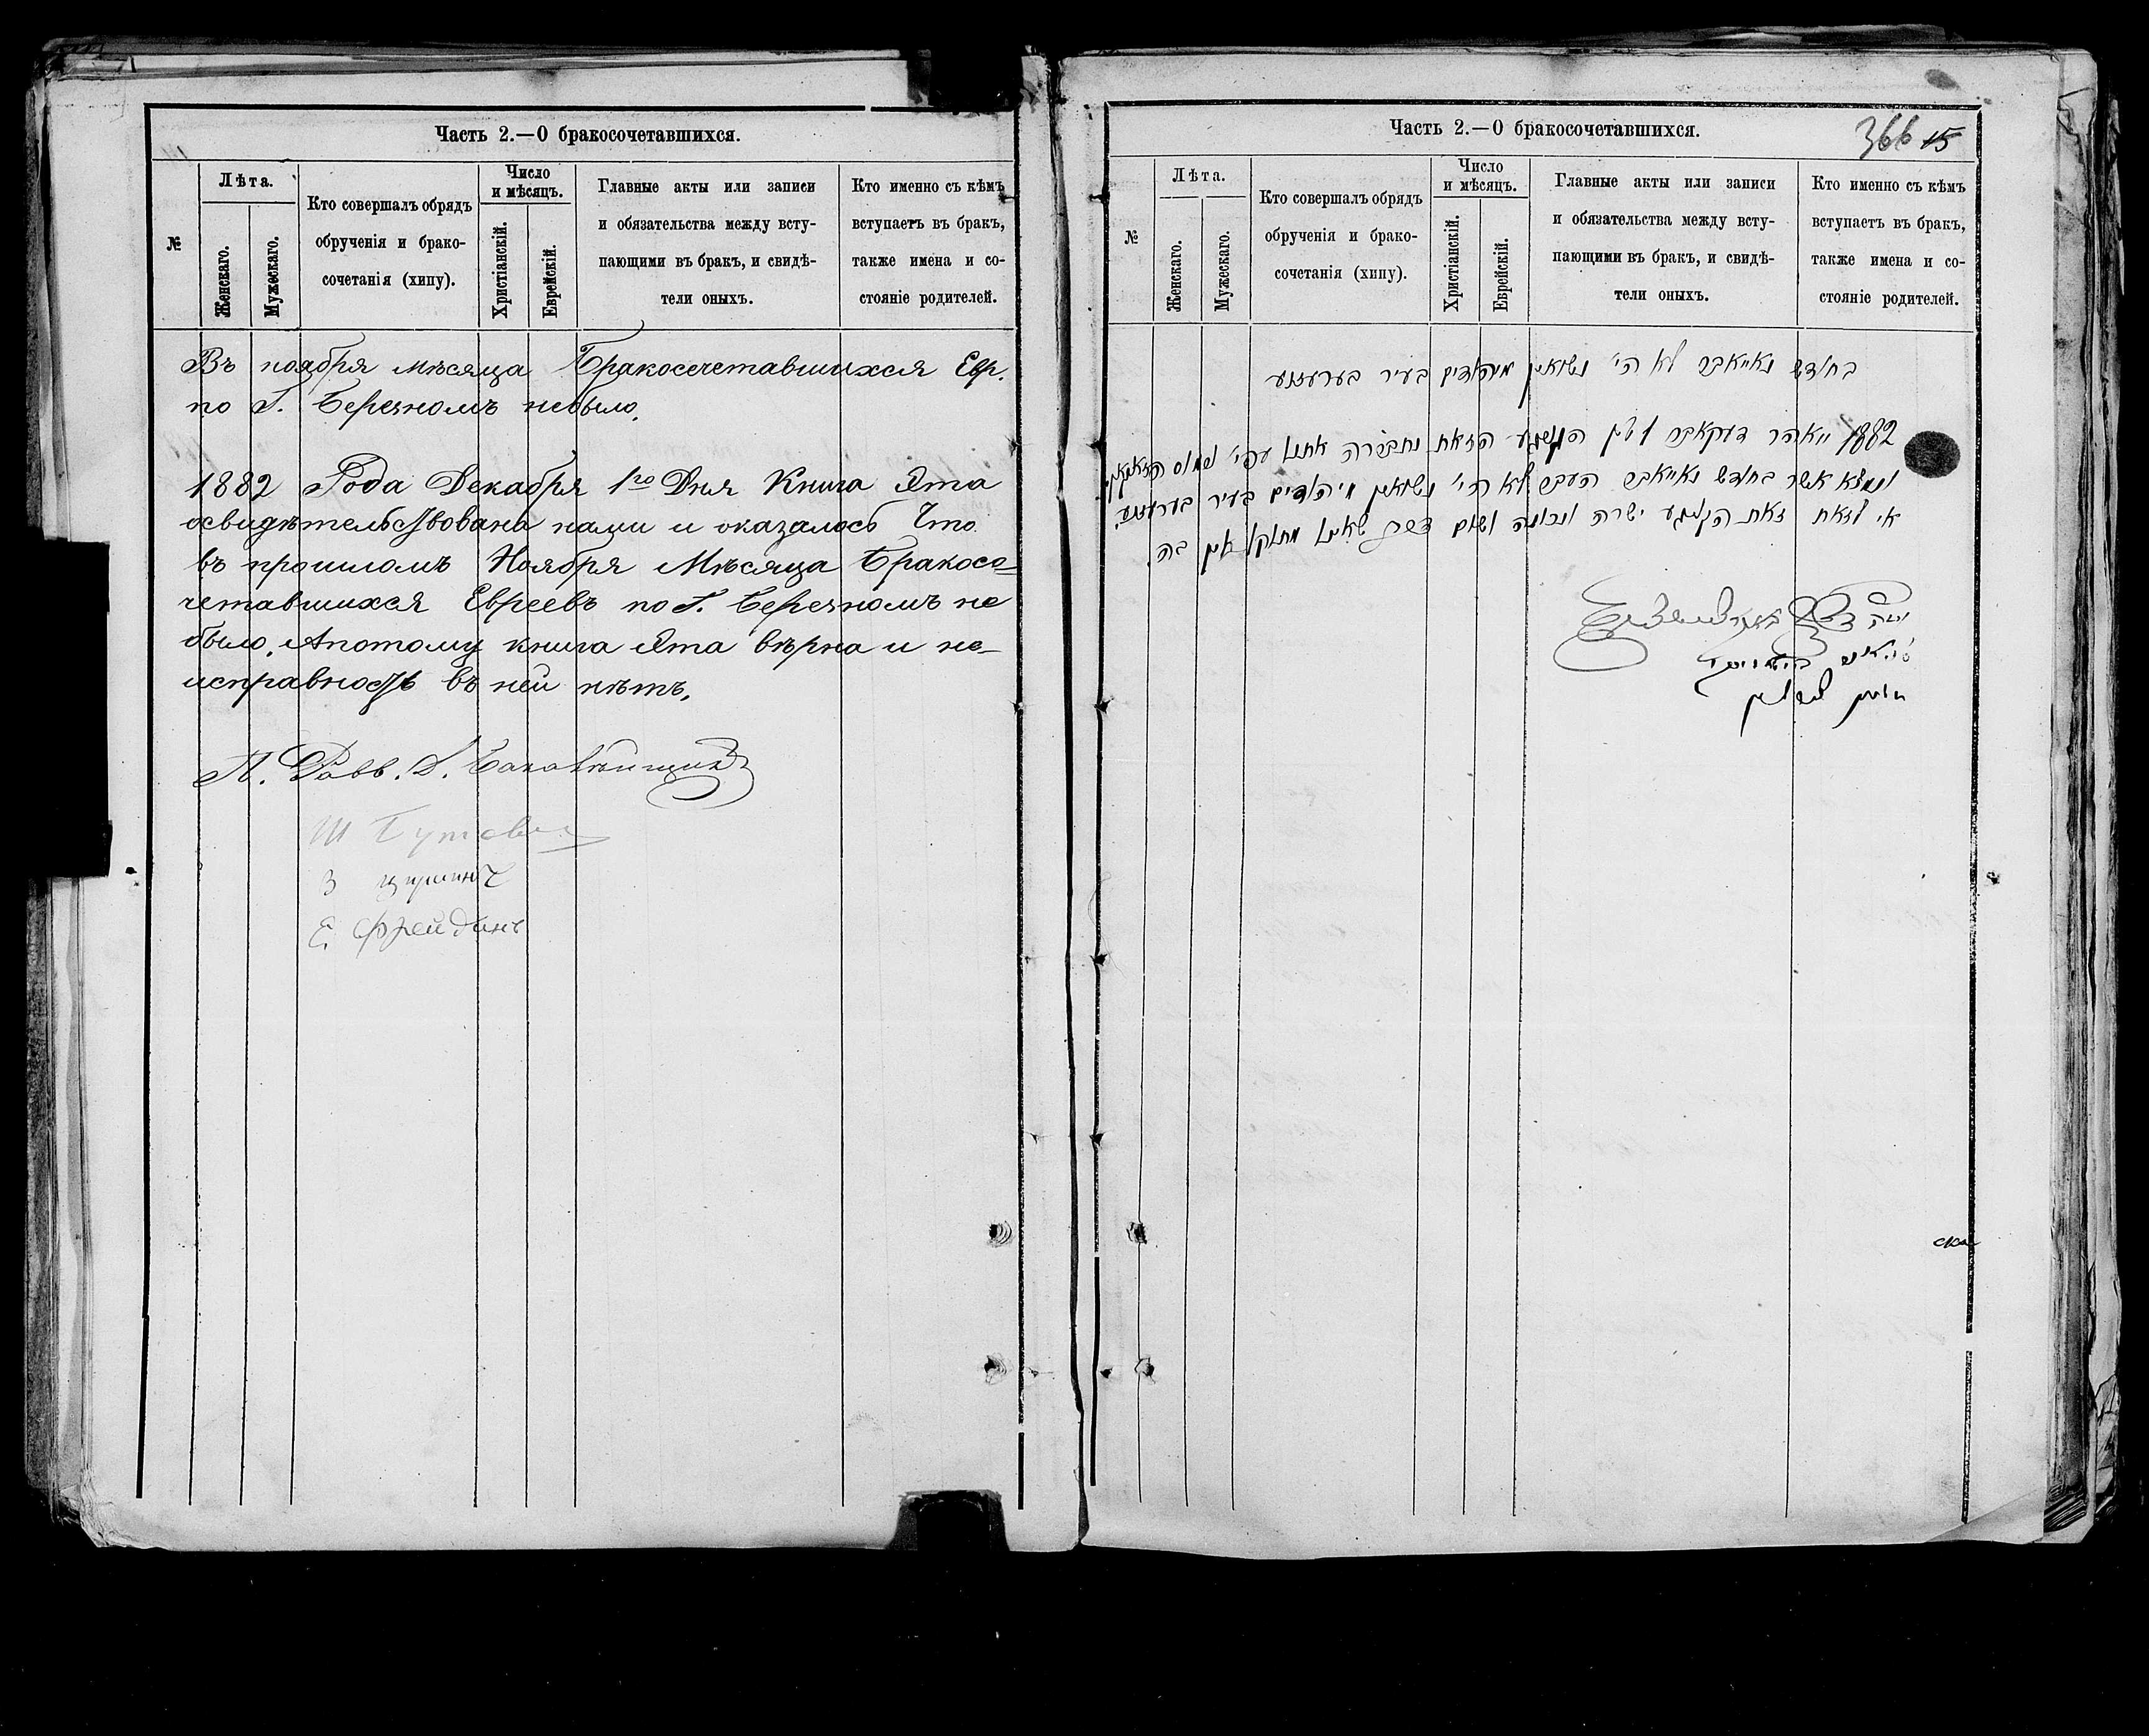 Часть 2.—О бракосочетавшихся.
№
Лѣта.
Женскаго.
Мужескаго.
Кто совершалъ обрядъ
обрученія и брако-
сочетанія (хипу).
Число
и мѣсяцъ.
Христіанскій.
Еврейскій.
Главные акты или записи
и обязательства между всту-
пающими въ бракъ, и свидѣ-
тели оныхъ.
Кто именно съ кѣмъ
вступаетъ въ бракъ,
также имена и со-
стояніе родителей.
Въ ноября мѣсяца Бракосочетавшихся Евр.
по Г. Березномъ небыло.
1882 Года Декабря 1го Дня Книга Эта
освидѣтельствована нами и оказалось Что
въ прошломъ Ноября Мѣсяца Бракосо=
четавшихся Евреевъ по Г. Березномъ не
было. Апотому книга Эта вѣрна и не=
исправность въ ней нѣтъ.
Равв.
Е. Фрейдинъ
Часть 2.—О бракосочетавшихся.
366 15
№
Лѣта.
Женскаго.
Мужескаго.
Кто совершалъ обрядъ
обрученія и брако-
сочетанія (хипу).
Число
и мѣсяцъ.
Христіанскій.
Еврейскій.
Главные акты или записи
и обязательства между всту-
пающими въ бракъ, и свидѣ-
тели оныхъ.
Кто именно съ кѣмъ
вступаетъ въ бракъ,
также имена и со-
стояніе родителей.
בחודש נאיאבר לא הי' נשואין מיהודים בעיר בערעזנע
1882 יאהר דעקאבר 1 טין הזאת
ונמצא אשר בחודש נאיאבר העבר לא הי' נשואין מיהודים בעיר בערעזנע
אי לזאת זאת ישרה ונכונה ושום דבר שאינו מתוקן אין בה.